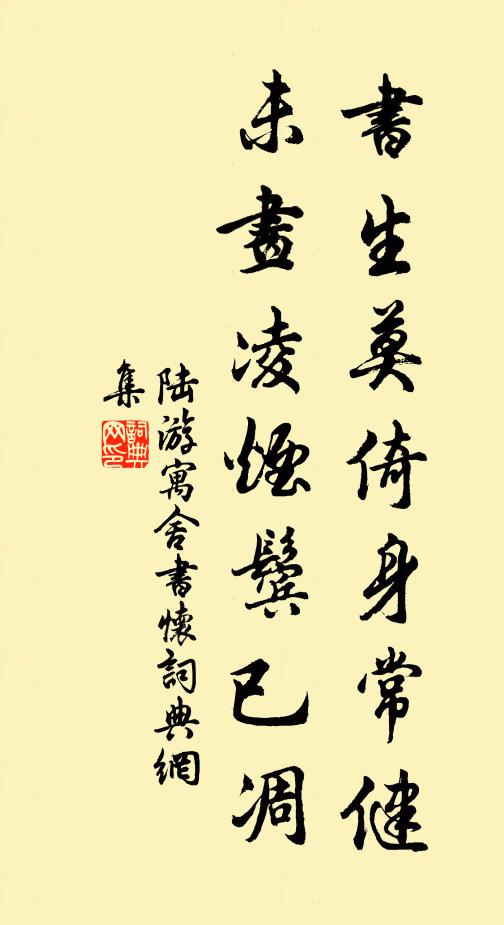 書生莫倚身常健
未畫凌煙鬢已凋
陸游寓舍書懷詞典網
集
詞典网印